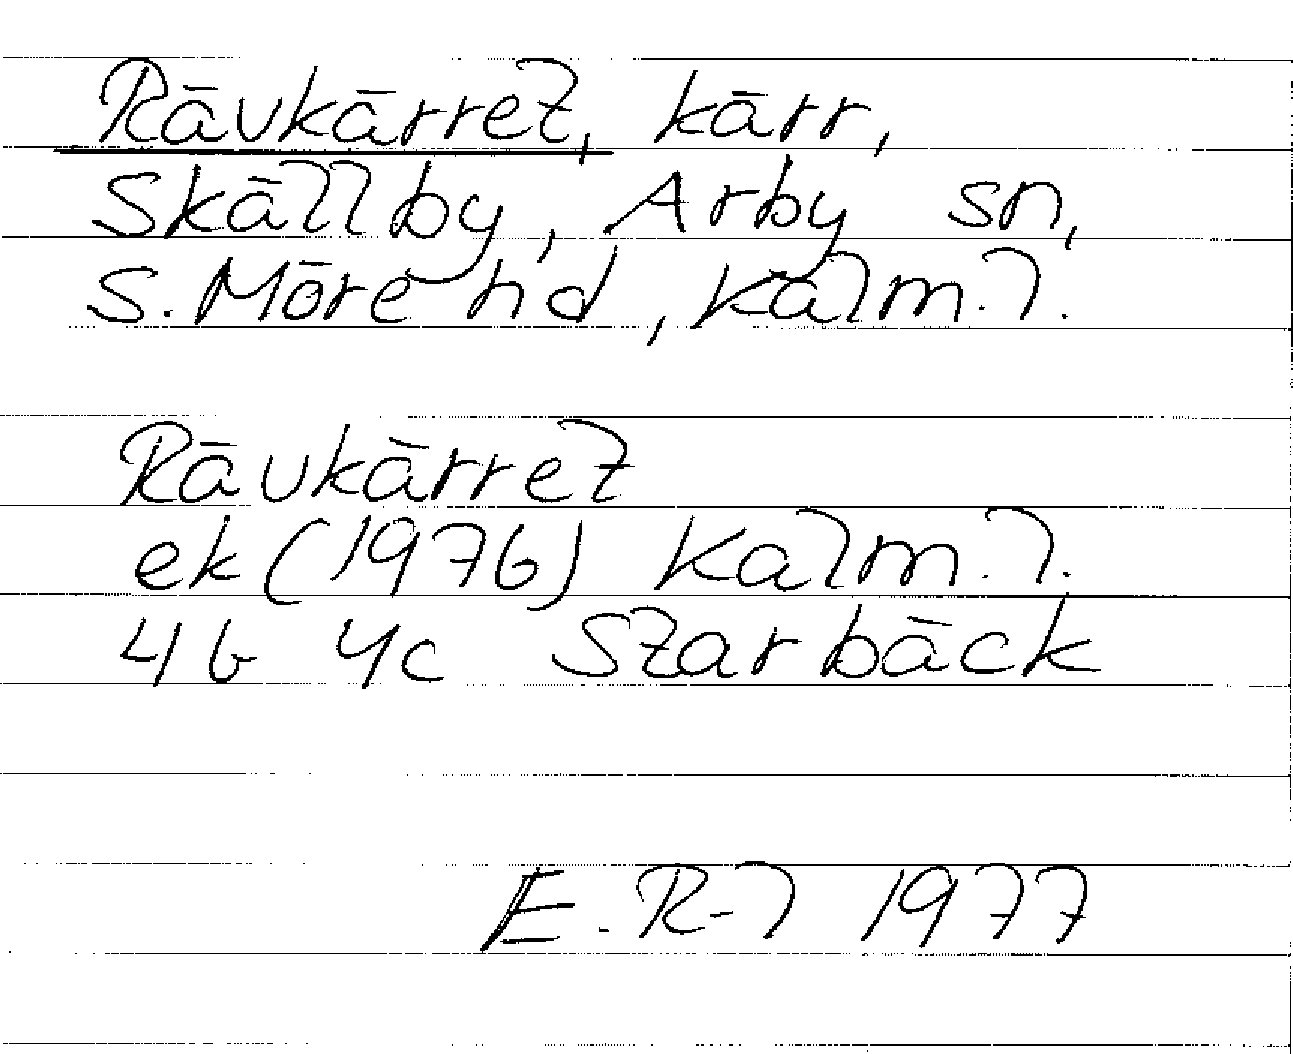 Rävkärret, kärr,
Skällby, Arby sn,
S. Möre hd, Kalm. l.
Rävkärret
ek (1976) Kalm. l.
4b 4c Starbäck
E. R-l 1977